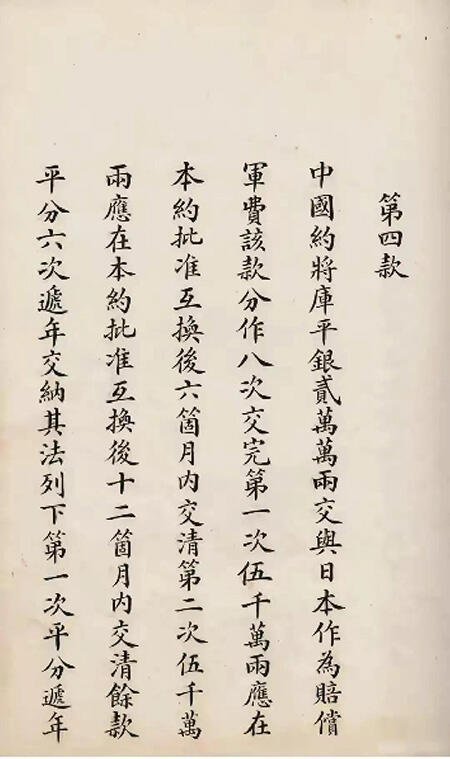 第四款
中國約將庫平銀貳萬萬兩交與日本作為賠償
軍費該款分作八次交完第一次伍千萬兩應在
本約批准互換後六箇月內交清第二次伍千萬
兩應在本約批准互換後十二箇月內交清餘款
平分六次遞年交納其法列下第一次平分遞年